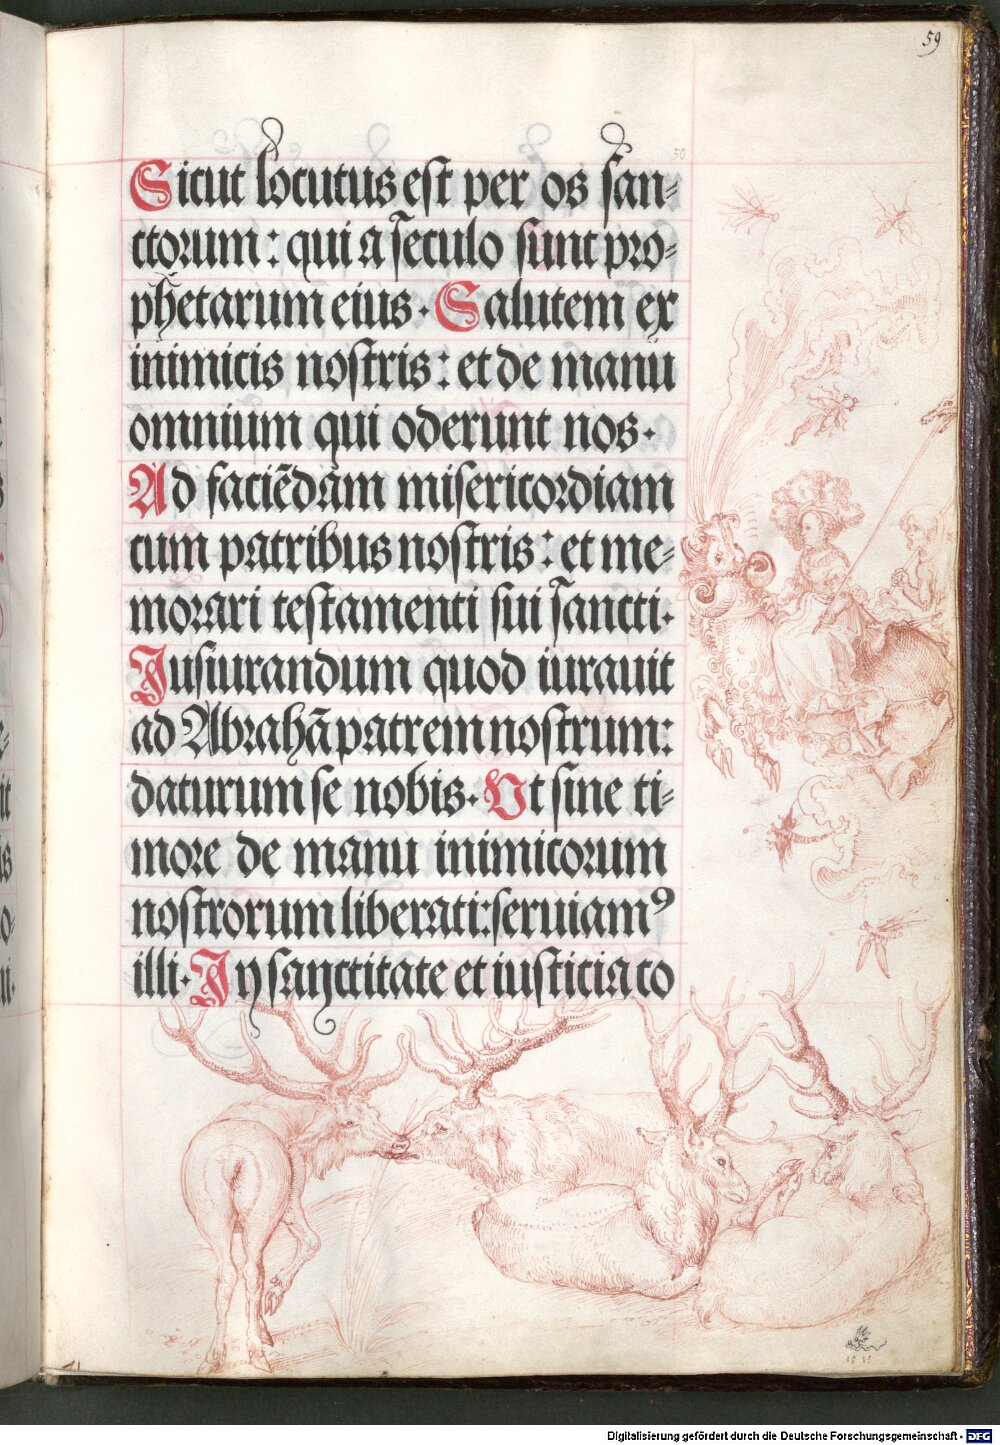 59
50
Sicut locutus est per os san⸗
ctorum : qui a seculo sunt pro⸗
phetarum eius · Salutem ex
inimicis nostris : et de manu
omnium qui oderunt nos ·
Ad faciẽdam misericordiam
cum patribus nostris : et me⸗
morari testamenti sui sancti ·
Iusiurandum quod iurauit
ad Abrahã patrem nostrum :
daturum se nobis · Ut sine ti⸗
more de manu inimicorum
nostrorum liberati : seruiamꝰ
illi · In sanctitate et iusticia co
Digitalisierung gefördert durch die Deutsche Forschungsgemeinschaft - DFG